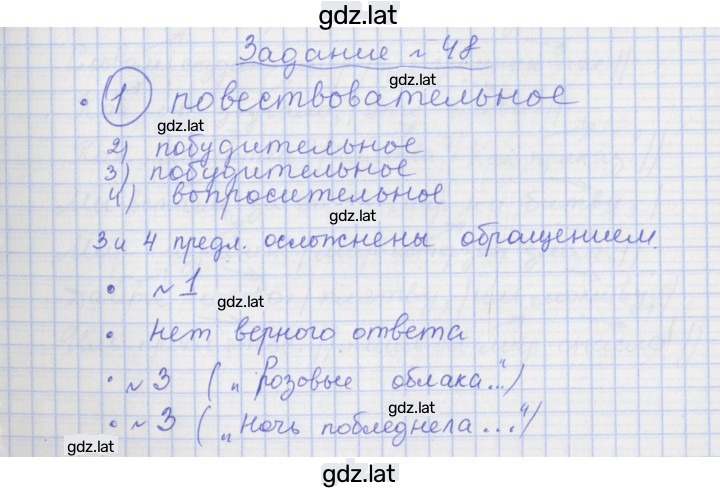 gdz.lat
Задание № 48
gdz.lat
• 1 повествовательное
gdz.lat
2) побудительное
3) побудительное
4) вопросительное
gdz.lat
3 и 4 предл. осложнены обращением.
• №1
gdz.lat
• Нет верного ответа
• №3 („Розовые облака...")
gdz.lat
• №3 („Ночь побледнела...")
gdz.lat
gdz.lat